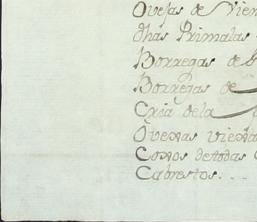 Ovejas de Vien
dhas Primalas
Borregas de
Borregas de
Cria dela
Ovexas viexas
Conos detodas
Cabrestos.